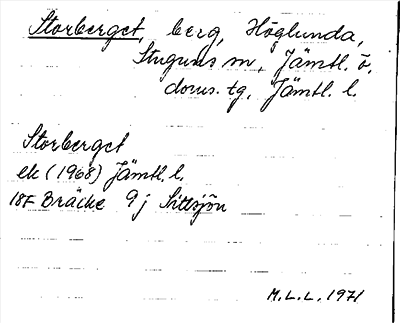 Storberget, berg, Höglunda,
Stuguns sn, Jämtl. ö.
doms. tg, Jämtl. l.
Storberget
ek (1968) Jämtl. l.
18F Bräcke 9j Sittsjön
M.L.L. 1971